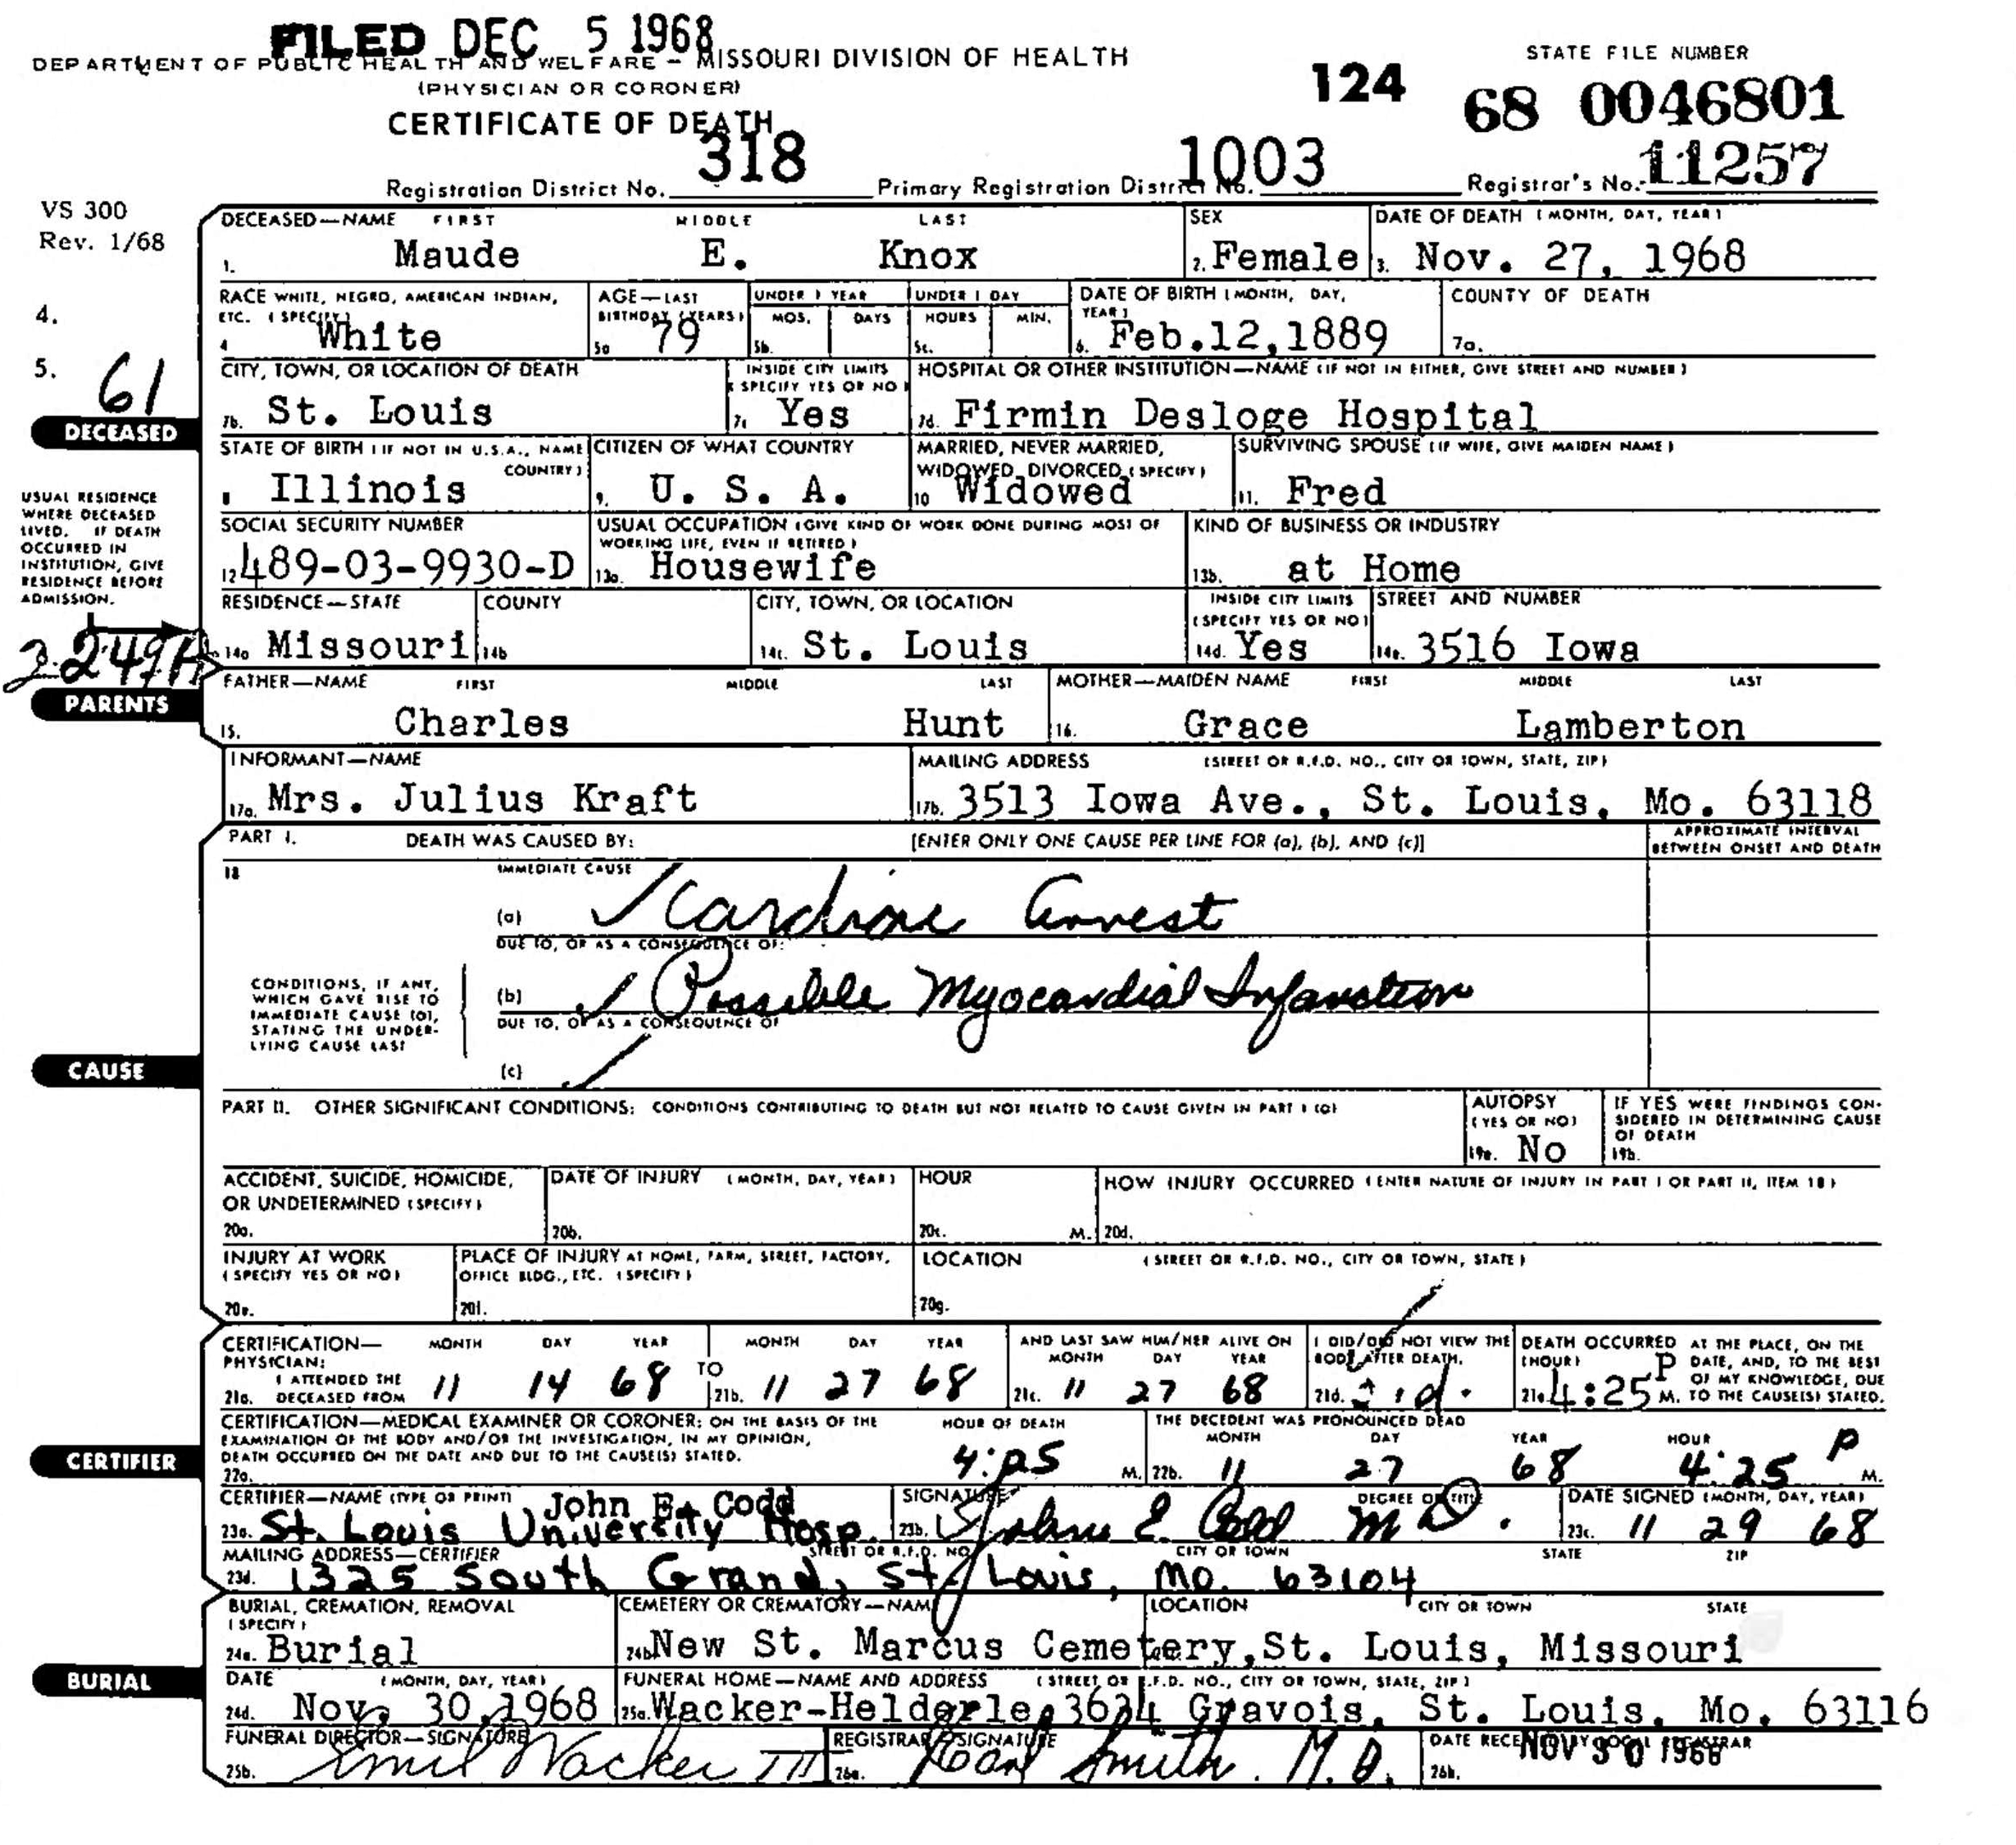 FILED DEC 5 1968
DEPARTMENT OF PUBLIC HEALTH AND WELFARE – MISSOURI DIVISION OF HEALTH
(PHYSICIAN OR CORONER)
CERTIFICATE OF DEATH
124
STATE FILE NUMBER
68 0046801
Registration District No. 318 Primary Registration District No. 1003 Registrar's No. 11257
VS 300
Rev. 1/68
DECEASED—NAME FIRST MIDDLE LAST SEX DATE OF DEATH (MONTH, DAY, YEAR)
1. Maude E. Knox 2. Female 3. Nov. 27, 1968
4.
RACE WHITE, NEGRO, AMERICAN INDIAN, ETC. (SPECIFY) AGE—LAST BIRTHDAY (YEARS) UNDER 1 YEAR MOS. DAYS UNDER 1 DAY HOURS MIN. DATE OF BIRTH (MONTH, DAY, YEAR) COUNTY OF DEATH
4 White 5a 79 5b. 5c. 6. Feb.12,1889 7a.
5.
61
DECEASED
CITY, TOWN, OR LOCATION OF DEATH INSIDE CITY LIMITS (SPECIFY YES OR NO) HOSPITAL OR OTHER INSTITUTION—NAME (IF NOT IN EITHER, GIVE STREET AND NUMBER)
7b. St. Louis 7c Yes 7d. Firmin Desloge Hospital
STATE OF BIRTH (IF NOT IN U.S.A., NAME COUNTRY) CITIZEN OF WHAT COUNTRY MARRIED, NEVER MARRIED, WIDOWED, DIVORCED (SPECIFY) SURVIVING SPOUSE (IF WIFE, GIVE MAIDEN NAME)
8 Illinois 9. U. S. A. 10 Widowed 11. Fred
USUAL RESIDENCE WHERE DECEASED LIVED. IF DEATH OCCURRED IN INSTITUTION, GIVE RESIDENCE BEFORE ADMISSION.
SOCIAL SECURITY NUMBER USUAL OCCUPATION (GIVE KIND OF WORK DONE DURING MOST OF WORKING LIFE, EVEN IF RETIRED) KIND OF BUSINESS OR INDUSTRY
12 489-03-9930-D 13a. Housewife 13b. at Home
RESIDENCE—STATE COUNTY CITY, TOWN, OR LOCATION INSIDE CITY LIMITS (SPECIFY YES OR NO) STREET AND NUMBER
14a Missouri 14b 14c. St. Louis 14d. Yes 14e. 3516 Iowa
PARENTS
FATHER—NAME FIRST MIDDLE LAST MOTHER—MAIDEN NAME FIRST MIDDLE LAST
15. Charles Hunt 16. Grace Lamberton
INFORMANT—NAME MAILING ADDRESS (STREET OR R.F.D. NO., CITY OR TOWN, STATE, ZIP)
17a. Mrs. Julius Kraft 17b. 3513 Iowa Ave., St. Louis, Mo. 63118
PART I. DEATH WAS CAUSED BY: [ENTER ONLY ONE CAUSE PER LINE FOR (a), (b), AND (c)] APPROXIMATE INTERVAL BETWEEN ONSET AND DEATH
18
IMMEDIATE CAUSE
(a) Cardiac arrest
DUE TO, OR AS A CONSEQUENCE OF:
CONDITIONS, IF ANY, WHICH GAVE RISE TO IMMEDIATE CAUSE (a), STATING THE UNDERLYING CAUSE LAST
(b) Possible Myocardial Infarction
DUE TO, OR AS A CONSEQUENCE OF
(c)
CAUSE
PART II. OTHER SIGNIFICANT CONDITIONS: CONDITIONS CONTRIBUTING TO DEATH BUT NOT RELATED TO CAUSE GIVEN IN PART I (a) AUTOPSY (YES OR NO) IF YES WERE FINDINGS CONSIDERED IN DETERMINING CAUSE OF DEATH
19a. No 19b.
ACCIDENT, SUICIDE, HOMICIDE, OR UNDETERMINED (SPECIFY) DATE OF INJURY (MONTH, DAY, YEAR) HOUR HOW INJURY OCCURRED (ENTER NATURE OF INJURY IN PART I OR PART II, ITEM 18)
20a. 20b. 20c. M. 20d.
INJURY AT WORK (SPECIFY YES OR NO) PLACE OF INJURY AT HOME, FARM, STREET, FACTORY, OFFICE BLDG., ETC. (SPECIFY) LOCATION (STREET OR R.F.D. NO., CITY OR TOWN, STATE)
20e. 20f. 20g.
CERTIFICATION—PHYSICIAN: MONTH DAY YEAR MONTH DAY YEAR AND LAST SAW HIM/HER ALIVE ON MONTH DAY YEAR I DID/DID NOT VIEW THE BODY AFTER DEATH. DEATH OCCURRED (HOUR) AT THE PLACE, ON THE DATE, AND, TO THE BEST OF MY KNOWLEDGE, DUE TO THE CAUSE(S) STATED.
21a. I ATTENDED THE DECEASED FROM 11 14 68 TO 21b. 11 27 68 21c. 11 27 68 21d. 21e 4:25 P M.
CERTIFICATION—MEDICAL EXAMINER OR CORONER: ON THE BASIS OF THE EXAMINATION OF THE BODY AND/OR THE INVESTIGATION, IN MY OPINION, DEATH OCCURRED ON THE DATE AND DUE TO THE CAUSE(S) STATED. HOUR OF DEATH THE DECEDENT WAS PRONOUNCED DEAD MONTH DAY YEAR HOUR
22a. 4:25 M. 22b. 11 27 68 4:25 P M.
CERTIFIER
CERTIFIER—NAME (TYPE OR PRINT) John E. Codd SIGNATURE DEGREE OR TITLE DATE SIGNED (MONTH, DAY, YEAR)
23a. St. Louis University Hosp. 23b. John E. Codd M D. 23c. 11 29 68
MAILING ADDRESS—CERTIFIER STREET OR R.F.D. NO. CITY OR TOWN STATE ZIP
23d. 1325 South Grand, St. Louis, Mo. 63104
BURIAL, CREMATION, REMOVAL (SPECIFY) CEMETERY OR CREMATORY—NAME LOCATION CITY OR TOWN STATE
24a. Burial 24b New St. Marcus Cemetery, St. Louis, Missouri
BURIAL
DATE (MONTH, DAY, YEAR) FUNERAL HOME—NAME AND ADDRESS (STREET OR R.F.D. NO., CITY OR TOWN, STATE, ZIP)
24d. Nov. 30,1968 25a. Wacker-Helderle, 3634 Gravois, St. Louis, Mo. 63116
FUNERAL DIRECTOR—SIGNATURE REGISTRAR SIGNATURE DATE RECEIVED BY LOCAL REGISTRAR
25b. Emil Wacker III 26a. Smith. M.D. 26b. NOV 30 1968